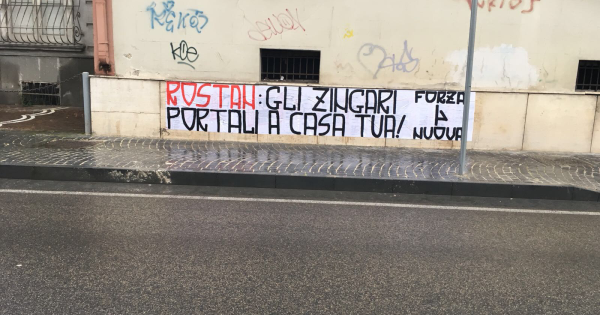 ROSTAN: GLI ZINGARI
PORTALI A CASA TUA!
FORZA
NUOVA